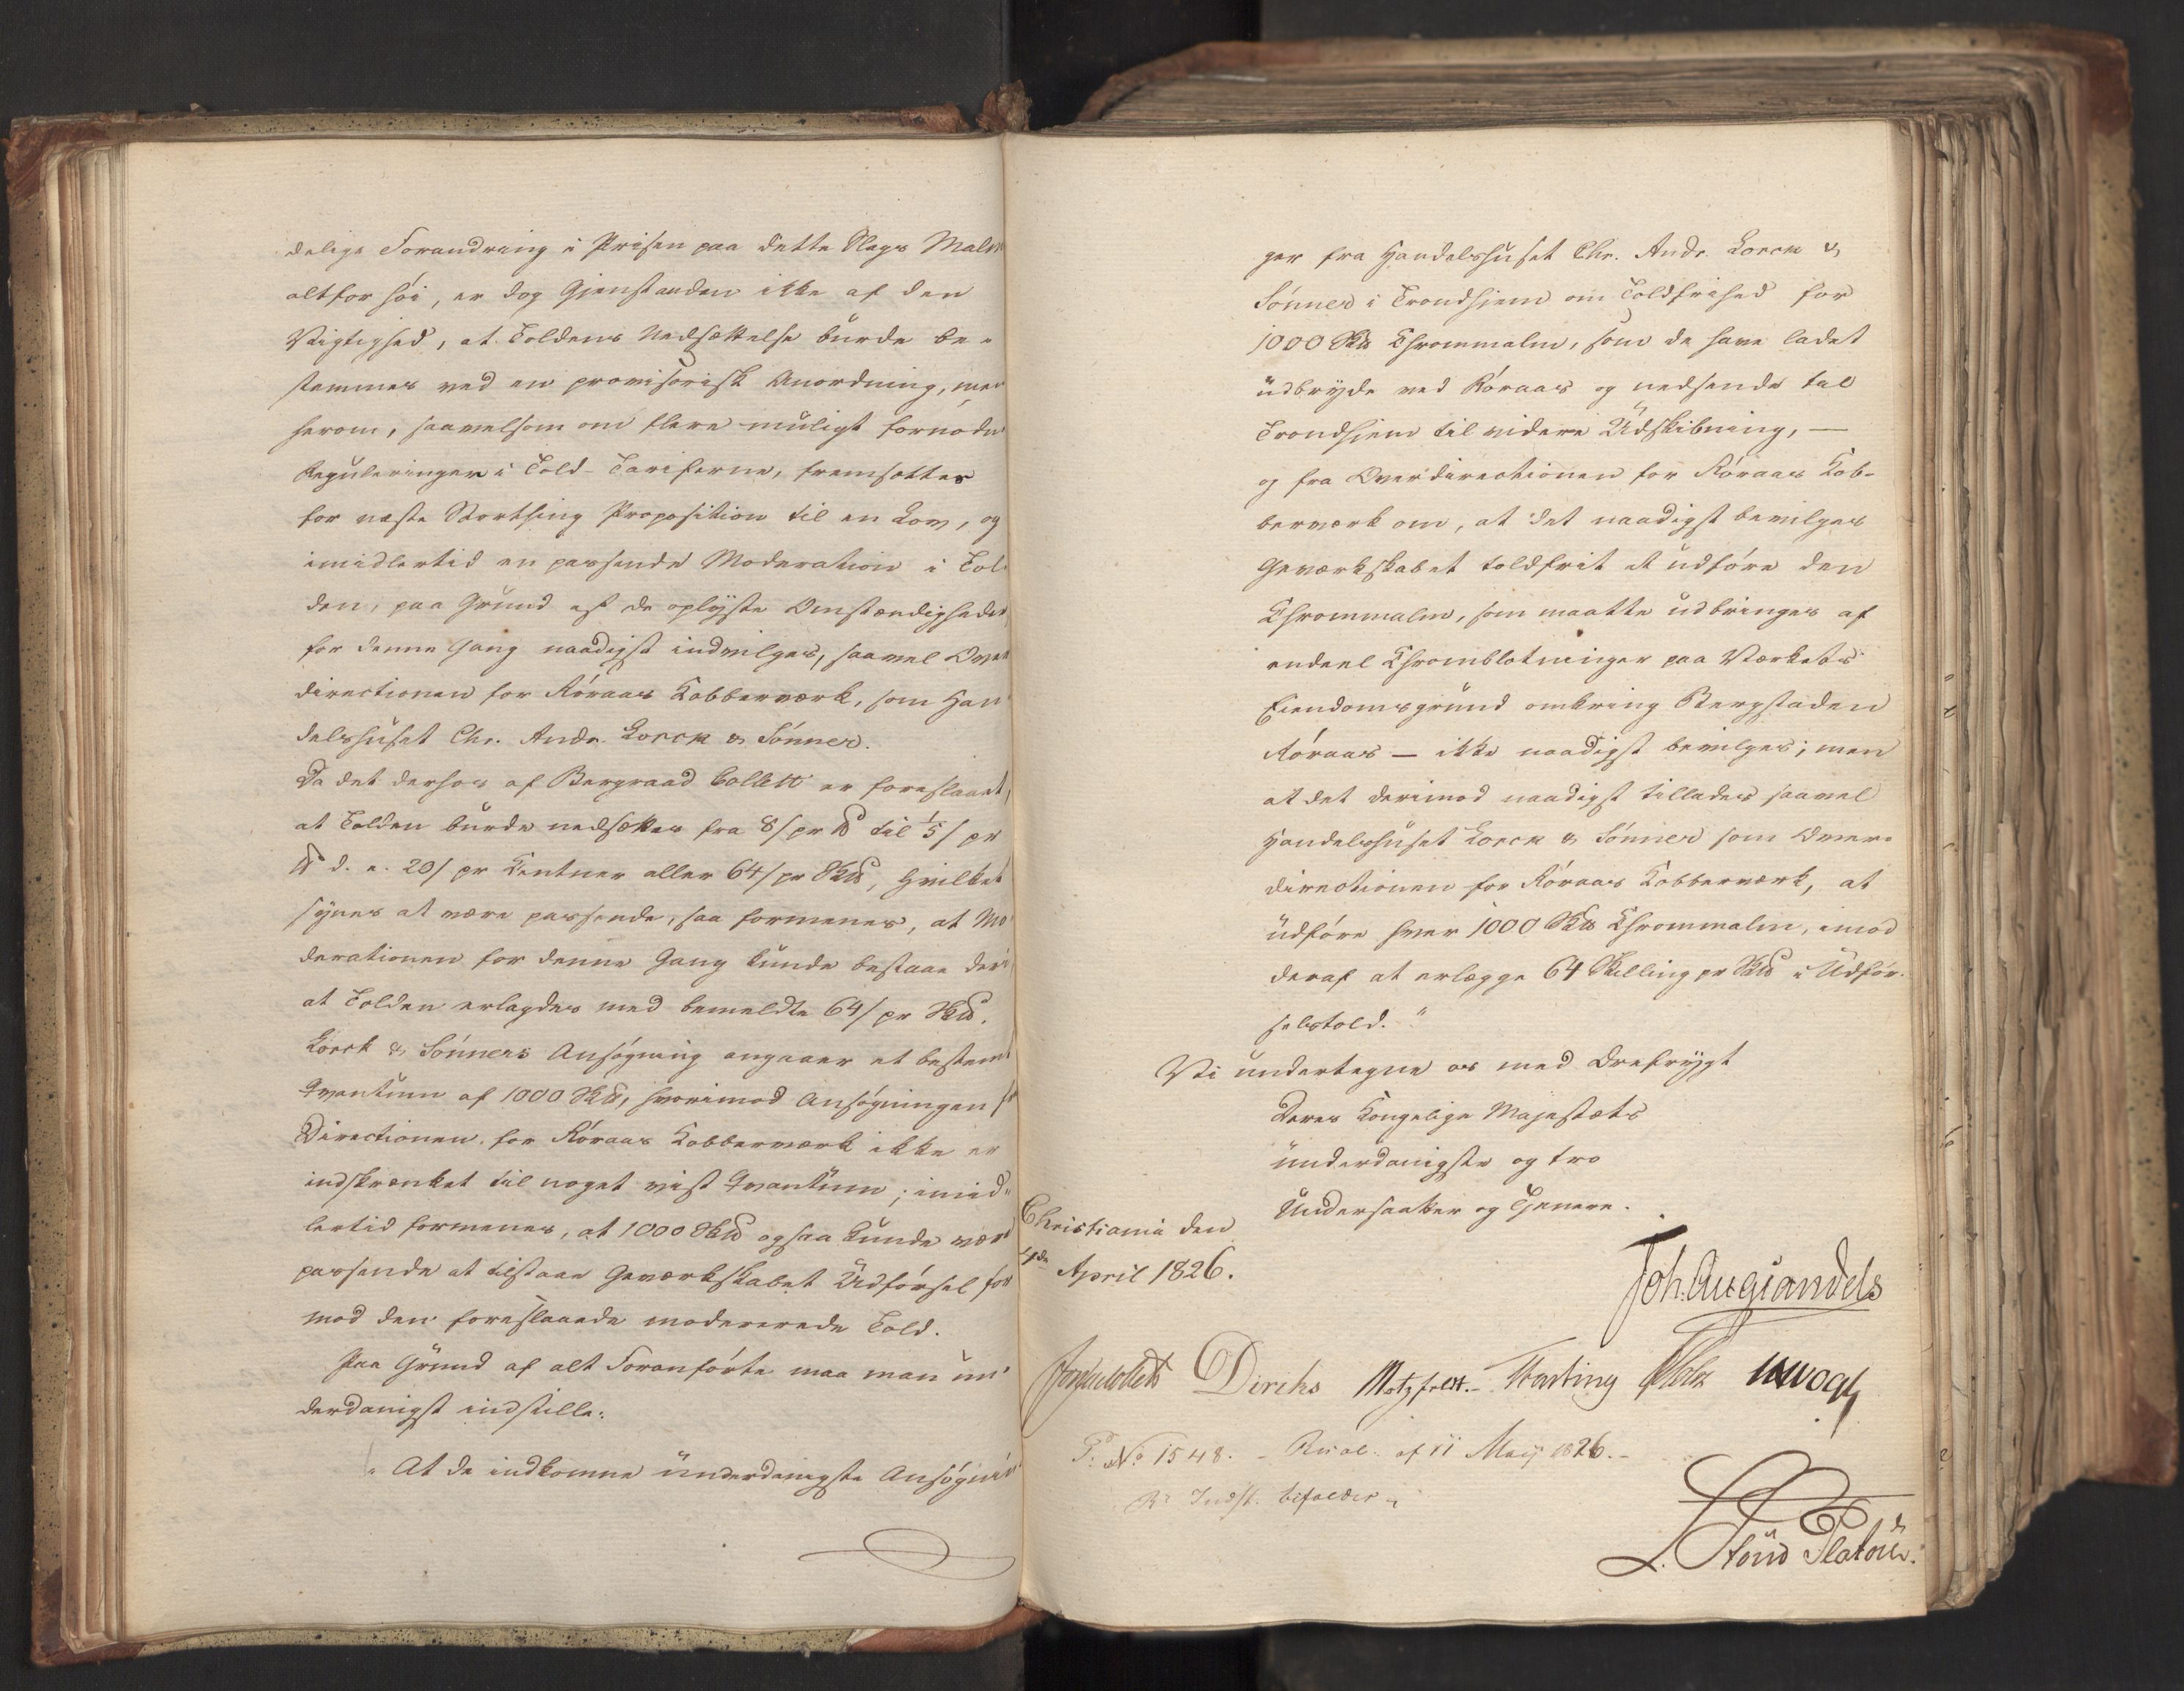 delige Forandring i Prisen paa dette Slags Malm
altfor høi, er dog Gjenstanden ikke af den
Vigtighed, at Toldens Nedsættelse burde be-
stemmes ved en provisorisk Anordning, men
herom, saavelsom om flere muligt fornødne
Reguleringer i Told-Tariferne, fremsættes
for næste Storthing Proposition til en Lov, og
imidlertid en passende Moderation i Tol-
den, paa Grund af de oplyste Omstændigheder
for denne Gang naadigst indvilges, saavel Over
directionen for Røraas Kobberværk, som Han-
delshuset Chr. Andr. Lorck & Sønner.
Da det derhos af Bergraad Collett er foreslaaet,
at Tolden burde nedsættes fra 8/ pr ℔ til 1/5/ pr
℔ d. e. 20/ pr Centner eller 64/ pr Sk℔, hvilket
synes at være passende, saa formenes, at Mo-
derationen for denne Gang kunde bestaae deri
at Tolden erlagdes med bemeldte 64/ pr Sk℔.
Lorck & Sønners Ansøgning angaaer et bestemt
Qvantum af 1000 Sk℔, hvorimod Ansøgningen fr
Directionen for Røraas Kobberværk ikke er
indskrænket til noget vist Qvantum; imid-
lertid formenes, at 1000 Sk℔ ogsaa kunde være
passende at tilstaae Geværkskabet Udførsel for
mod den foreslaaede modererede Told.
Paa Grund af alt Foranførte maa man un-
derdanigst indstille:
"At de indkomne underdanigste Ansøgnin-
ger fra Handelshuset Chr. Andr. Lorck &
Sønner i Trondhjem om Toldfrihed for
1000 Sk℔ Chrommalm, som de have ladet
udbryde ved Røraas og nedsende til
Trondhjem til videre Udskibning, —
og fra Overdirectionen for Røraas Kob-
berværk om, at det naadigst bevilges
Geværkskabet toldfrit at udføre den
Chrommalm, som maatte udbringes af
endeel Chromblotninger paa Værkets
Eiendomsgrund omkring Bergstaden
Røraas — ikke naadigst bevilges; men
at det derimod naadigst tillades saavel
Handelshuset Lorck & Sønner som Over-
directionen for Røraas Kobberværk, at
udføre hver 1000 Sk℔ Chrommalm, imod
deraf at erlægge 64 Skilling pr Sk℔ i Udfør-
selstold."
Vi undertegne os med Ærefrygt
Deres Kongelige Majestæts
underdanigste og tro
Undersaatter og Tjenere.
Christiania den
4de April 1826.
Joh. Aug Sandels
Jonas Collett Diriks Motzfeldt. Fasting Holst JHVogt
P: No 1548. - Resol. af 11 Maij 1826. -
Rs Indst. bifaldes
L. Stoud Platou.